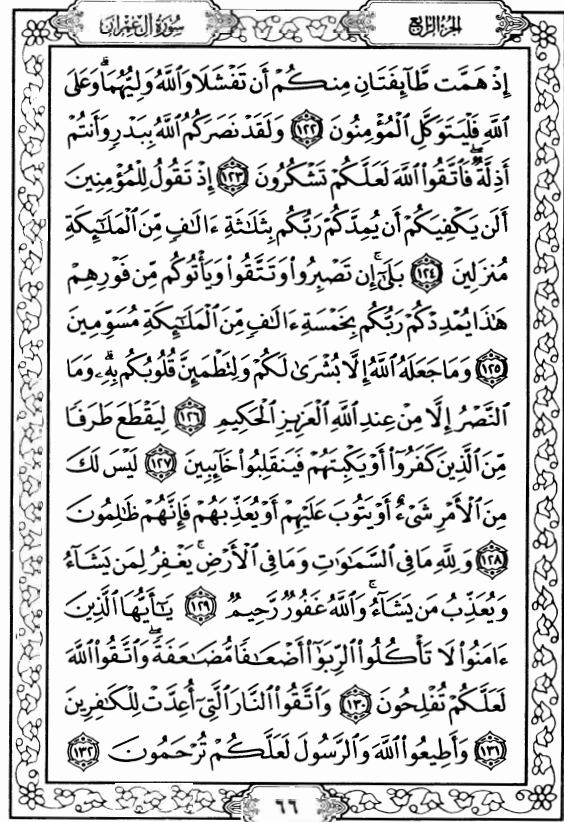 سُورَةُ آلِ عِمْرَان
الجُزءُ الرَّابِع
إِذْ هَمَّت طَّآئِفَتَانِ مِنكُمْ أَن تَفْشَلَا وَٱللَّهُ وَلِيُّهُمَا ۗ وَعَلَى
ٱللَّهِ فَلْيَتَوَكَّلِ ٱلْمُؤْمِنُونَ ١٢٢ وَلَقَدْ نَصَرَكُمُ ٱللَّهُ بِبَدْرٍ وَأَنتُمْ
أَذِلَّةٌ ۖ فَٱتَّقُوا۟ ٱللَّهَ لَعَلَّكُمْ تَشْكُرُونَ ١٢٣ إِذْ تَقُولُ لِلْمُؤْمِنِينَ
أَلَن يَكْفِيَكُمْ أَن يُمِدَّكُمْ رَبُّكُم بِثَلَٰثَةِ ءَالَٰفٍ مِّنَ ٱلْمَلَٰٓئِكَةِ
مُنزَلِينَ ١٢٤ بَلَىٰٓ ۚ إِن تَصْبِرُوا۟ وَتَتَّقُوا۟ وَيَأْتُوكُم مِّن فَوْرِهِمْ
هَٰذَا يُمْدِدْكُمْ رَبُّكُم بِخَمْسَةِ ءَالَٰفٍ مِّنَ ٱلْمَلَٰٓئِكَةِ مُسَوِّمِينَ
١٢٥ وَمَا جَعَلَهُ ٱللَّهُ إِلَّا بُشْرَىٰ لَكُمْ وَلِتَطْمَئِنَّ قُلُوبُكُم بِهِۦ ۗ وَمَا
ٱلنَّصْرُ إِلَّا مِنْ عِندِ ٱللَّهِ ٱلْعَزِيزِ ٱلْحَكِيمِ ١٢٦ لِيَقْطَعَ طَرَفًا
مِّنَ ٱلَّذِينَ كَفَرُوٓا۟ أَوْ يَكْبِتَهُمْ فَيَنقَلِبُوا۟ خَآئِبِينَ ١٢٧ لَيْسَ لَكَ
مِنَ ٱلْأَمْرِ شَىْءٌ أَوْ يَتُوبَ عَلَيْهِمْ أَوْ يُعَذِّبَهُمْ فَإِنَّهُمْ ظَٰلِمُونَ
١٢٨ وَلِلَّهِ مَا فِى ٱلسَّمَٰوَٰتِ وَمَا فِى ٱلْأَرْضِ ۚ يَغْفِرُ لِمَن يَشَآءُ
وَيُعَذِّبُ مَن يَشَآءُ ۚ وَٱللَّهُ غَفُورٌ رَّحِيمٌ ١٢٩ يَٰٓأَيُّهَا ٱلَّذِينَ
ءَامَنُوا۟ لَا تَأْكُلُوا۟ ٱلرِّبَوٰٓا۟ أَضْعَٰفًا مُّضَٰعَفَةً ۖ وَٱتَّقُوا۟ ٱللَّهَ
لَعَلَّكُمْ تُفْلِحُونَ ١٣٠ وَٱتَّقُوا۟ ٱلنَّارَ ٱلَّتِىٓ أُعِدَّتْ لِلْكَٰفِرِينَ
١٣١ وَأَطِيعُوا۟ ٱللَّهَ وَٱلرَّسُولَ لَعَلَّكُمْ تُرْحَمُونَ ١٣٢
٦٦